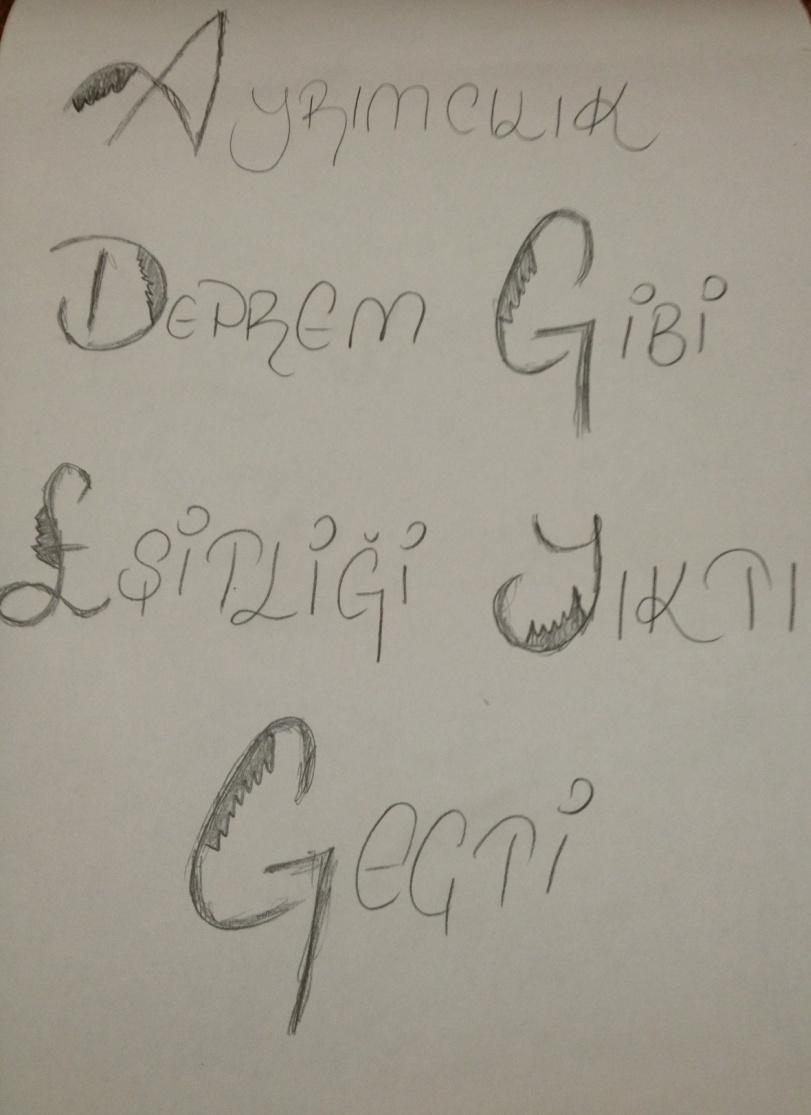 Ayrımcılık
Deprem Gibi
Eşitliği Yıktı
Geçti